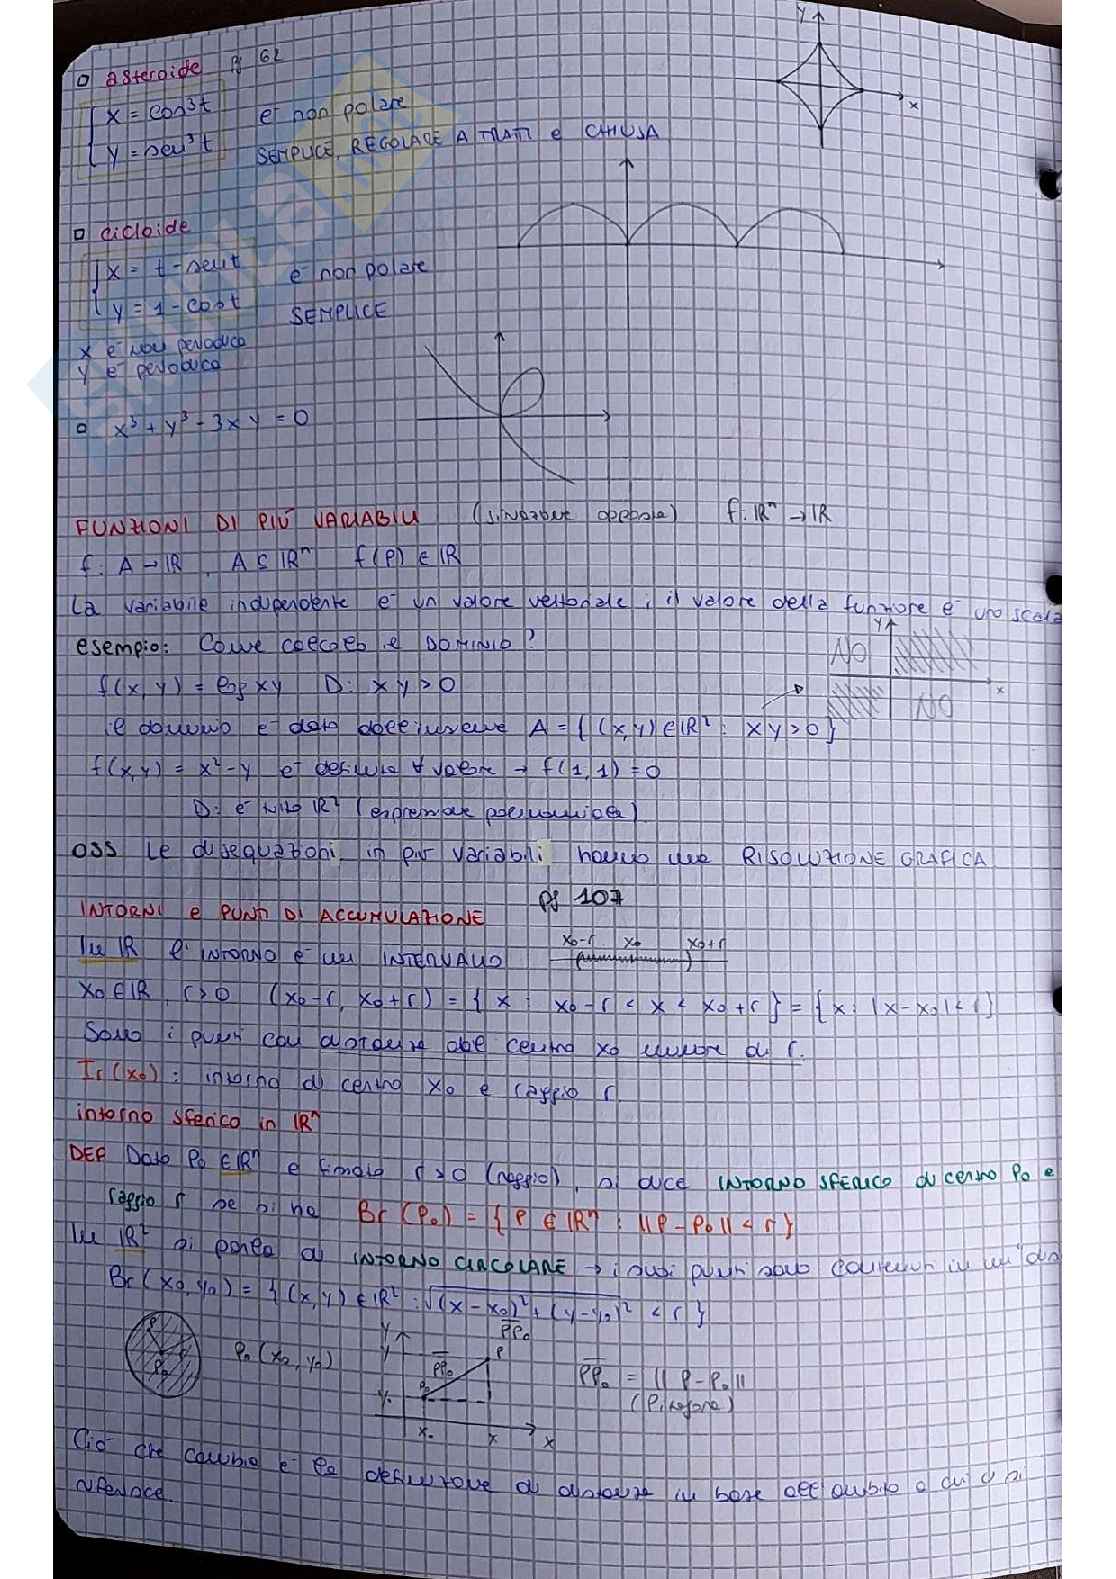 □ asteroide pg 62
{ x = cos³t
y = sen³t
è non polare
SEMPLICE, REGOLARE A TRATTI e CHIUSA
y
x
□ cicloide
{ x = t - sent
y = 1 - cost
è non polare
SEMPLICE
x è non periodica
y è periodica
□ x³ + y³ - 3xy = 0
FUNZIONI DI PIÙ VARIABILI f: ℝⁿ → ℝ
f: A → ℝ, A ⊆ ℝⁿ f(P) ∈ ℝ
La variabile indipendente è un valore vettoriale, il valore della funzione è uno scala
esempio: Come calcolo il DOMINIO?
f(x, y) = log xy D: xy > 0
y
x
NO
NO
D
il dominio è dato dall'insieme A = { (x, y) ∈ ℝ² : xy > 0 }
f(x, y) = x² - y è definita ∀ valore → f(1, 1) = 0
D: è tutto ℝ² (espressione polinomiale)
OSS Le disequazioni in più variabili hanno una RISOLUZIONE GRAFICA
pg 107
INTORNI e PUNTI DI ACCUMULAZIONE
In ℝ l'intorno è un INTERVALLO
x₀-r x₀ x₀+r
x₀ ∈ ℝ, r > 0 (x₀-r, x₀+r) = { x : x₀-r < x < x₀+r } = { x : |x-x₀| < r }
Sono i punti con distanza dal centro x₀ minore di r.
Ir(x₀): intorno di centro x₀ e raggio r
intorno sferico in ℝⁿ
DEF Dato P₀ ∈ ℝⁿ e fissato r > 0 (raggio), si dice INTORNO SFERICO di centro P₀ e
raggio r se si ha Br(P₀) = { P ∈ ℝⁿ : ||P-P₀|| < r }
In ℝ² si parla di INTORNO CIRCOLARE → i suoi punti sono contenuti in un dis
Br(x₀, y₀) = { (x, y) ∈ ℝ² : √(x-x₀)² + (y-y₀)² < r }
PP₀
P
P₀
P₀(x₀, y₀)
y
y
y₀
PP₀
P
P₀
x₀
x
x
PP₀ = ||P-P₀||
(Pitagora)
Ciò che cambia è la definizione di distanza in base all'ambito a cui ci si
riferisce.